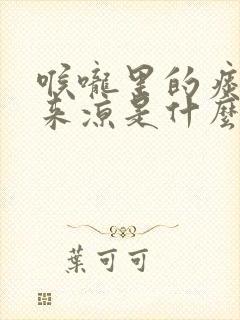 喉嚨里的痰
来凉是什麼
葉可可